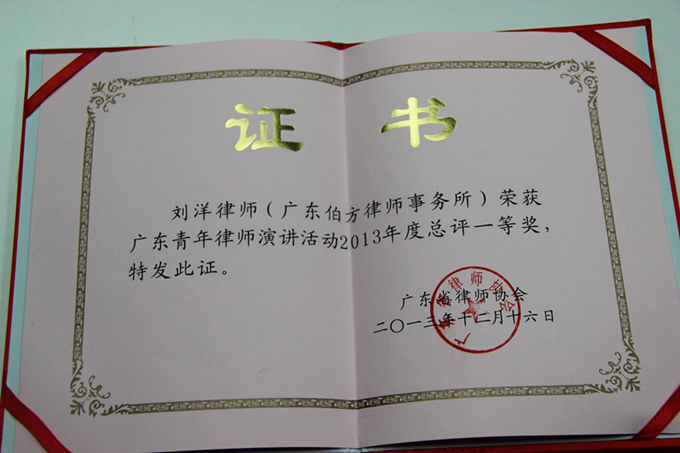 证书
刘洋律师（广东伯方律师事务所）荣获
广东青年律师演讲活动2013年度总评一等奖，
特发此证。
广东省律师协会
二〇一三年十二月十六日
广东省律师协会